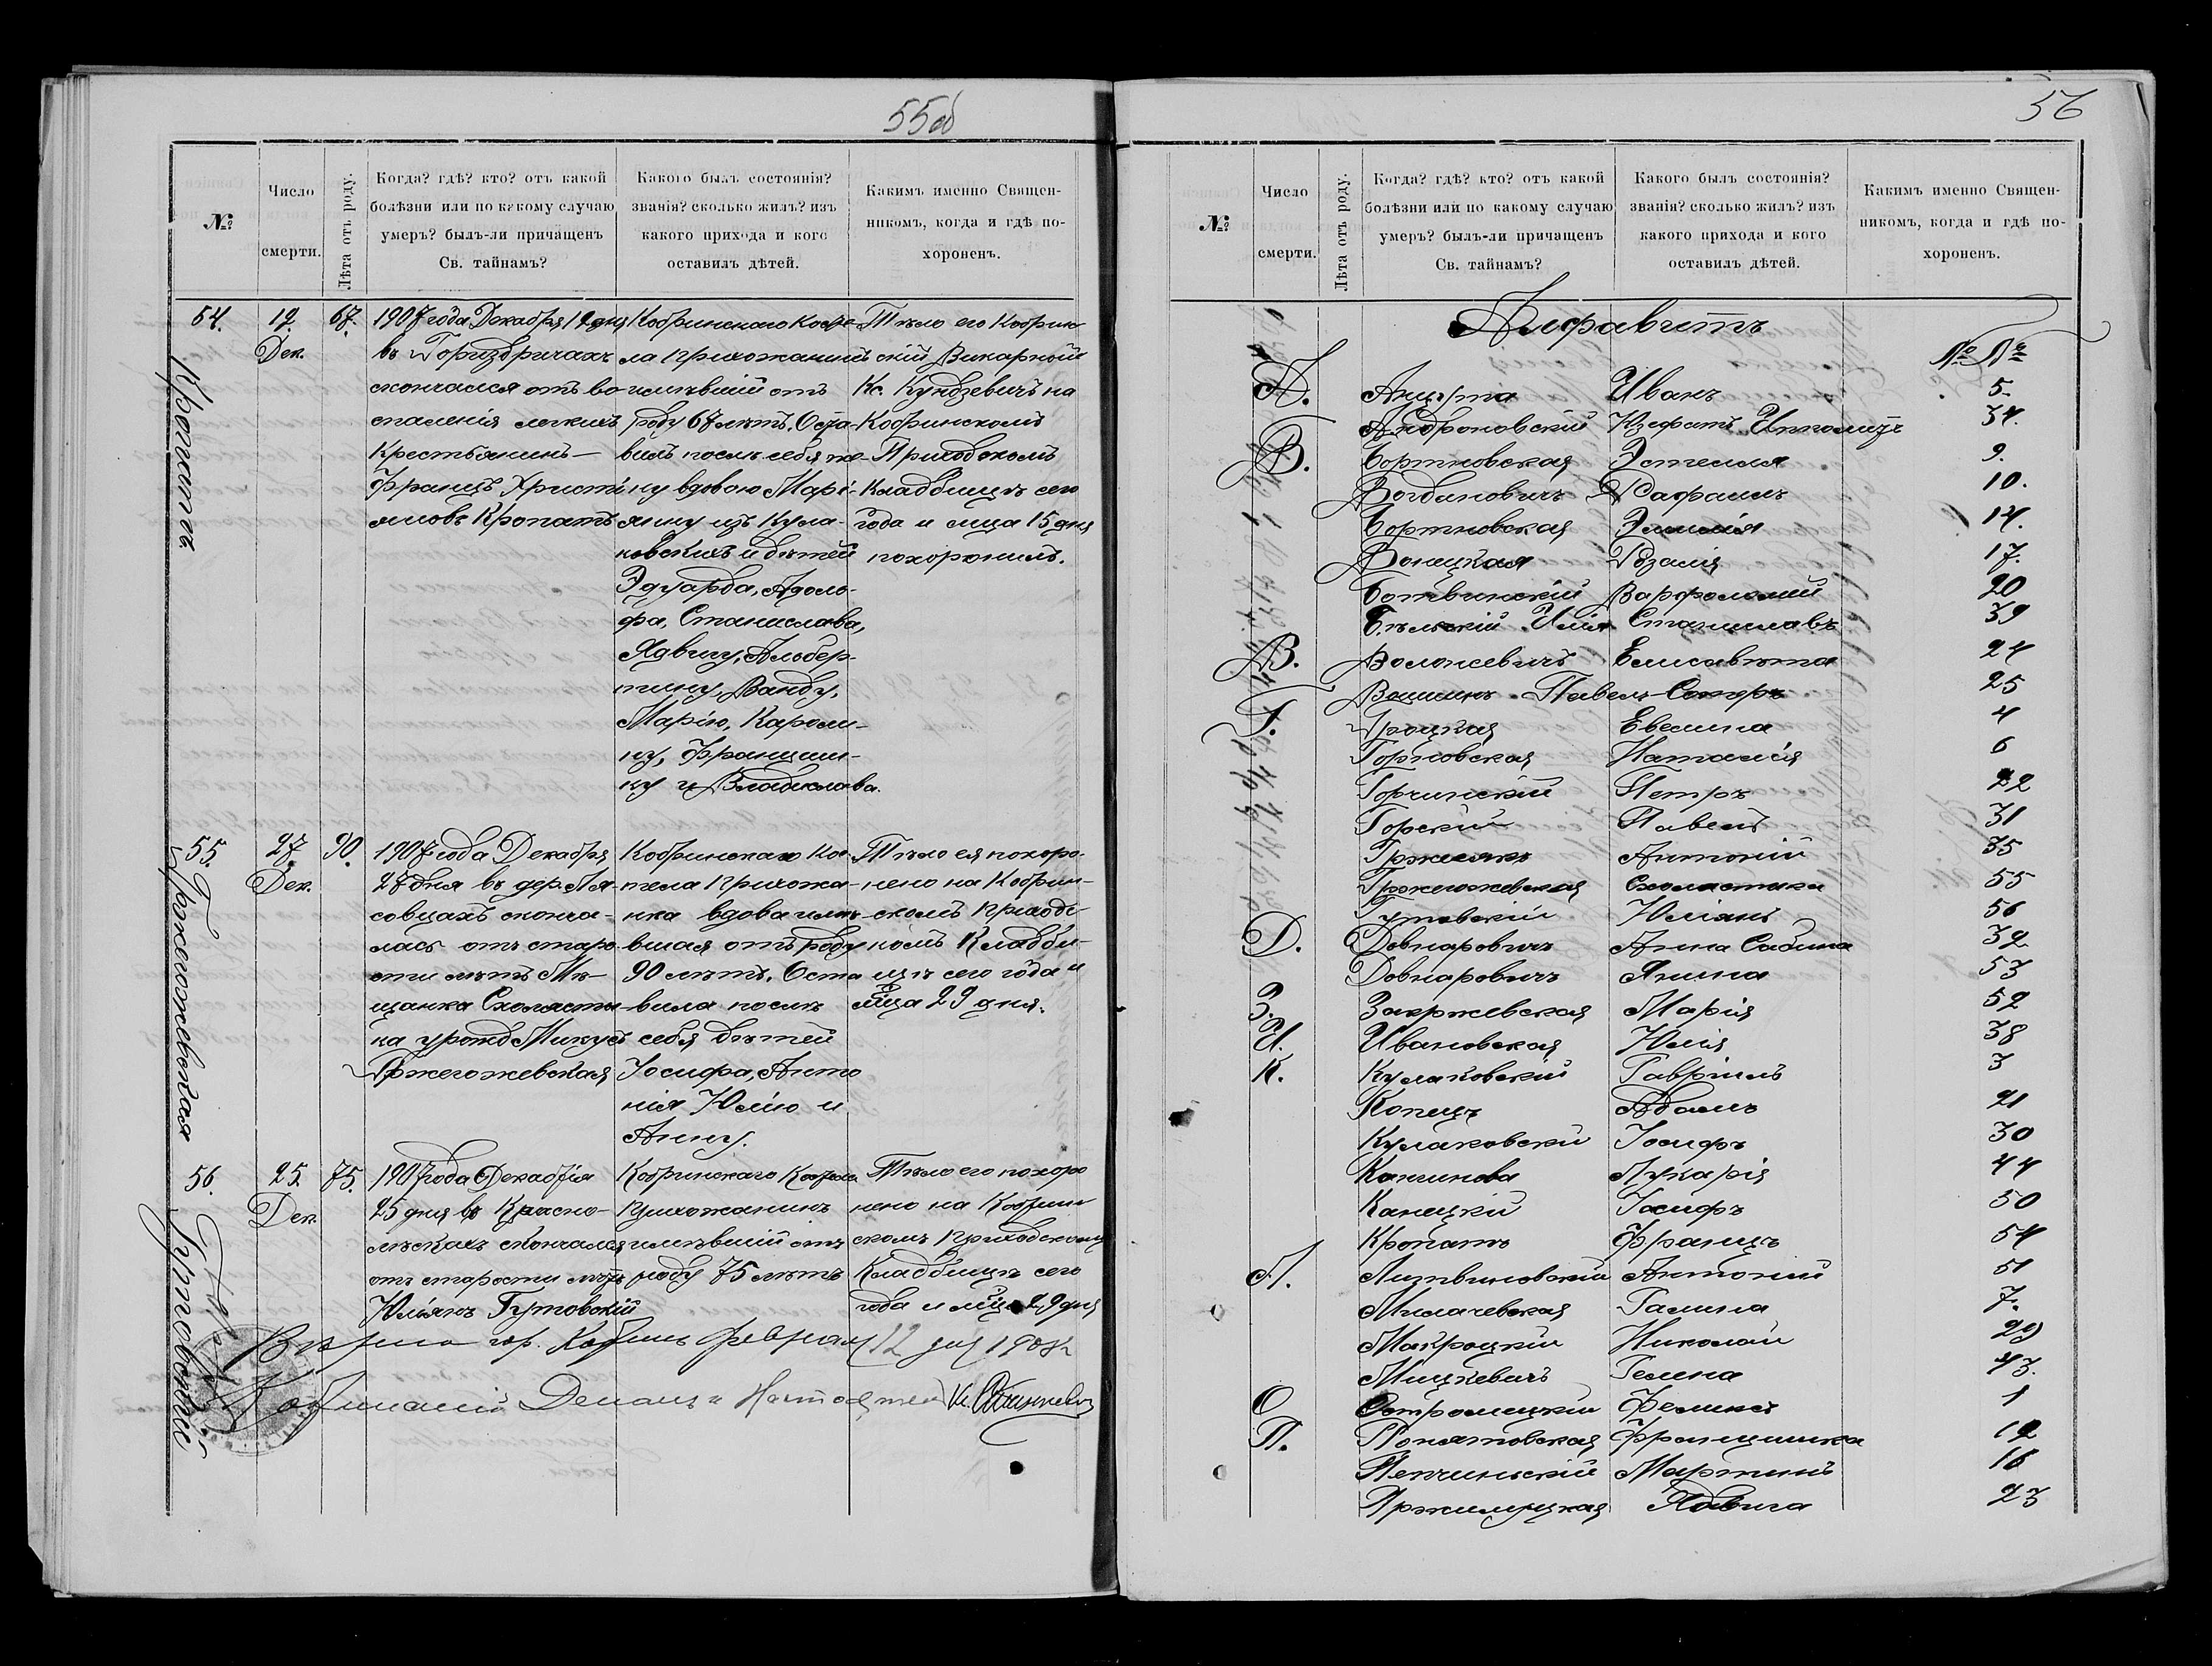 55об
№
Число смерти.
Лѣта отъ роду.
Когда? гдѣ? кто? отъ какой
болѣзни или по какому случаю
умеръ? былъ-ли причащенъ
Св. тайнамъ?
Какого былъ состоянія?
званія? сколько жилъ? изъ
какого прихода и кого
оставилъ дѣтей.
Какимъ именно Священ-
никомъ, когда и гдѣ по-
хороненъ.
54.
Кропатъ
12.
Дек.
67.
1907 года Декабря 12 дня
въ Гориздричахъ
скончался отъ во-
спаленія легкихъ
Крестьянинъ —
Францъ Христи
яновъ Кропатъ
Кобринскаго Косте-
ла Прихожанинъ
имѣвшій отъ
роду 67 лѣтъ. Оста-
вилъ послѣ себя же-
ну вдовою Марі-
янну изъ Кула-
ковскихъ и дѣтей
Эдуарда, Адоль-
фа, Станислава,
Ядвигу, Альбер-
тину, Ванду,
Марію, Кароли-
ну, Францишк-
ку и Владислава.
Тѣло его Кобрин
скій Викарный
Кс. Кундзевичъ на
Кобринскомъ
Приходскомъ
Кладбищѣ сего
года и мца 15 дня
похоронилъ.
55.
Гржегожевская
27.
Дек.
90.
1907 года Декабря
27 дня въ дер. Ля-
совцахъ сконча-
лась отъ старо-
сти лѣтъ Мѣ-
щанка Схоласти-
ка урожд Микусъ
Гржегожевская
Кобринскаго Кос-
тела Прихожа-
нка вдова имѣ-
вшая отъ роду
90 лѣтъ. Оста
вила послѣ
себя дѣтей
Іосифа, Анто
нія Юлію и
Анну.
Тѣло ея похоро-
нено на Кобрин-
скомъ Приходс
комъ Кладби-
щѣ сего года и
мца 29 дня.
56.
Гутовскій
25.
Дек.
75.
1907 года Декабря
25 дня въ Красно-
лѣскахъ скончался
отъ старости лѣтъ
Юліянъ Гутовскій
Кобринскаго Костела
Прихожанинъ
имѣвшій отъ
роду 75 лѣтъ
Тѣло его похоро
нено на Кобрин
скомъ Приходскомъ
Кладбищѣ сего
года и мца 29 дня
Вѣрно гор. Кобринъ февраля 12 дня 1908 г.
Кобринскій Деканъ и Настоятель Кс.
56
№
Число смерти.
Лѣта отъ роду.
Когда? гдѣ? кто? отъ какой
болѣзни или по какому случаю
умеръ? былъ-ли причащенъ
Св. тайнамъ?
Какого былъ состоянія?
званія? сколько жилъ? изъ
какого прихода и кого
оставилъ дѣтей.
Какимъ именно Священ-
никомъ, когда и гдѣ по-
хороненъ.
Алфавитъ
№№
А. Анцута Иванъ 5.
Андроновскій Юзефатъ Ипполитъ 34.
Б. Бортновская Эстелля 9.
Богдановичъ Рафаилъ 10.
Бортновская Эмилія 14.
Бонецкая Розалія 17.
Ботвинскій Варфоломей 20
Бѣльскій Илія Станиславъ 39
В. Волонсевичъ Елисавета 24
Вашинъ Павелъ 25
Г. Гроцкая Евелина 4
Горновская Наталія 6
Горчинскій Петръ 22
Горскій Павелъ 31
Гржелякъ Антоній 35
Гржегожевская Схоластика 55
Гутовскій Юліянъ 56
Д. Довнаровичъ Анна Сабина 32
Довнаровичъ Янина 53
З. Закржевская Марія 52
И. Ивановская Юлія 38
К. Кулаковскій Гавріилъ 3
Копецъ Адамъ 21
Кулаковскій Іосифъ 30
Качинова Лукарія 44
Канецкій Іосифъ 50
Кропатъ Францъ 54
Л. Литвиновскій Антоній 51
Милачевская Галина 7.
Макроцкій Николай 29
Мицкевичъ Гелена 43.
О Остромецкій Феликсъ 1
П. Понятовская Францишка 12
Пенчинскій Мартинъ 16
Пржилуцкая Ядвига 23